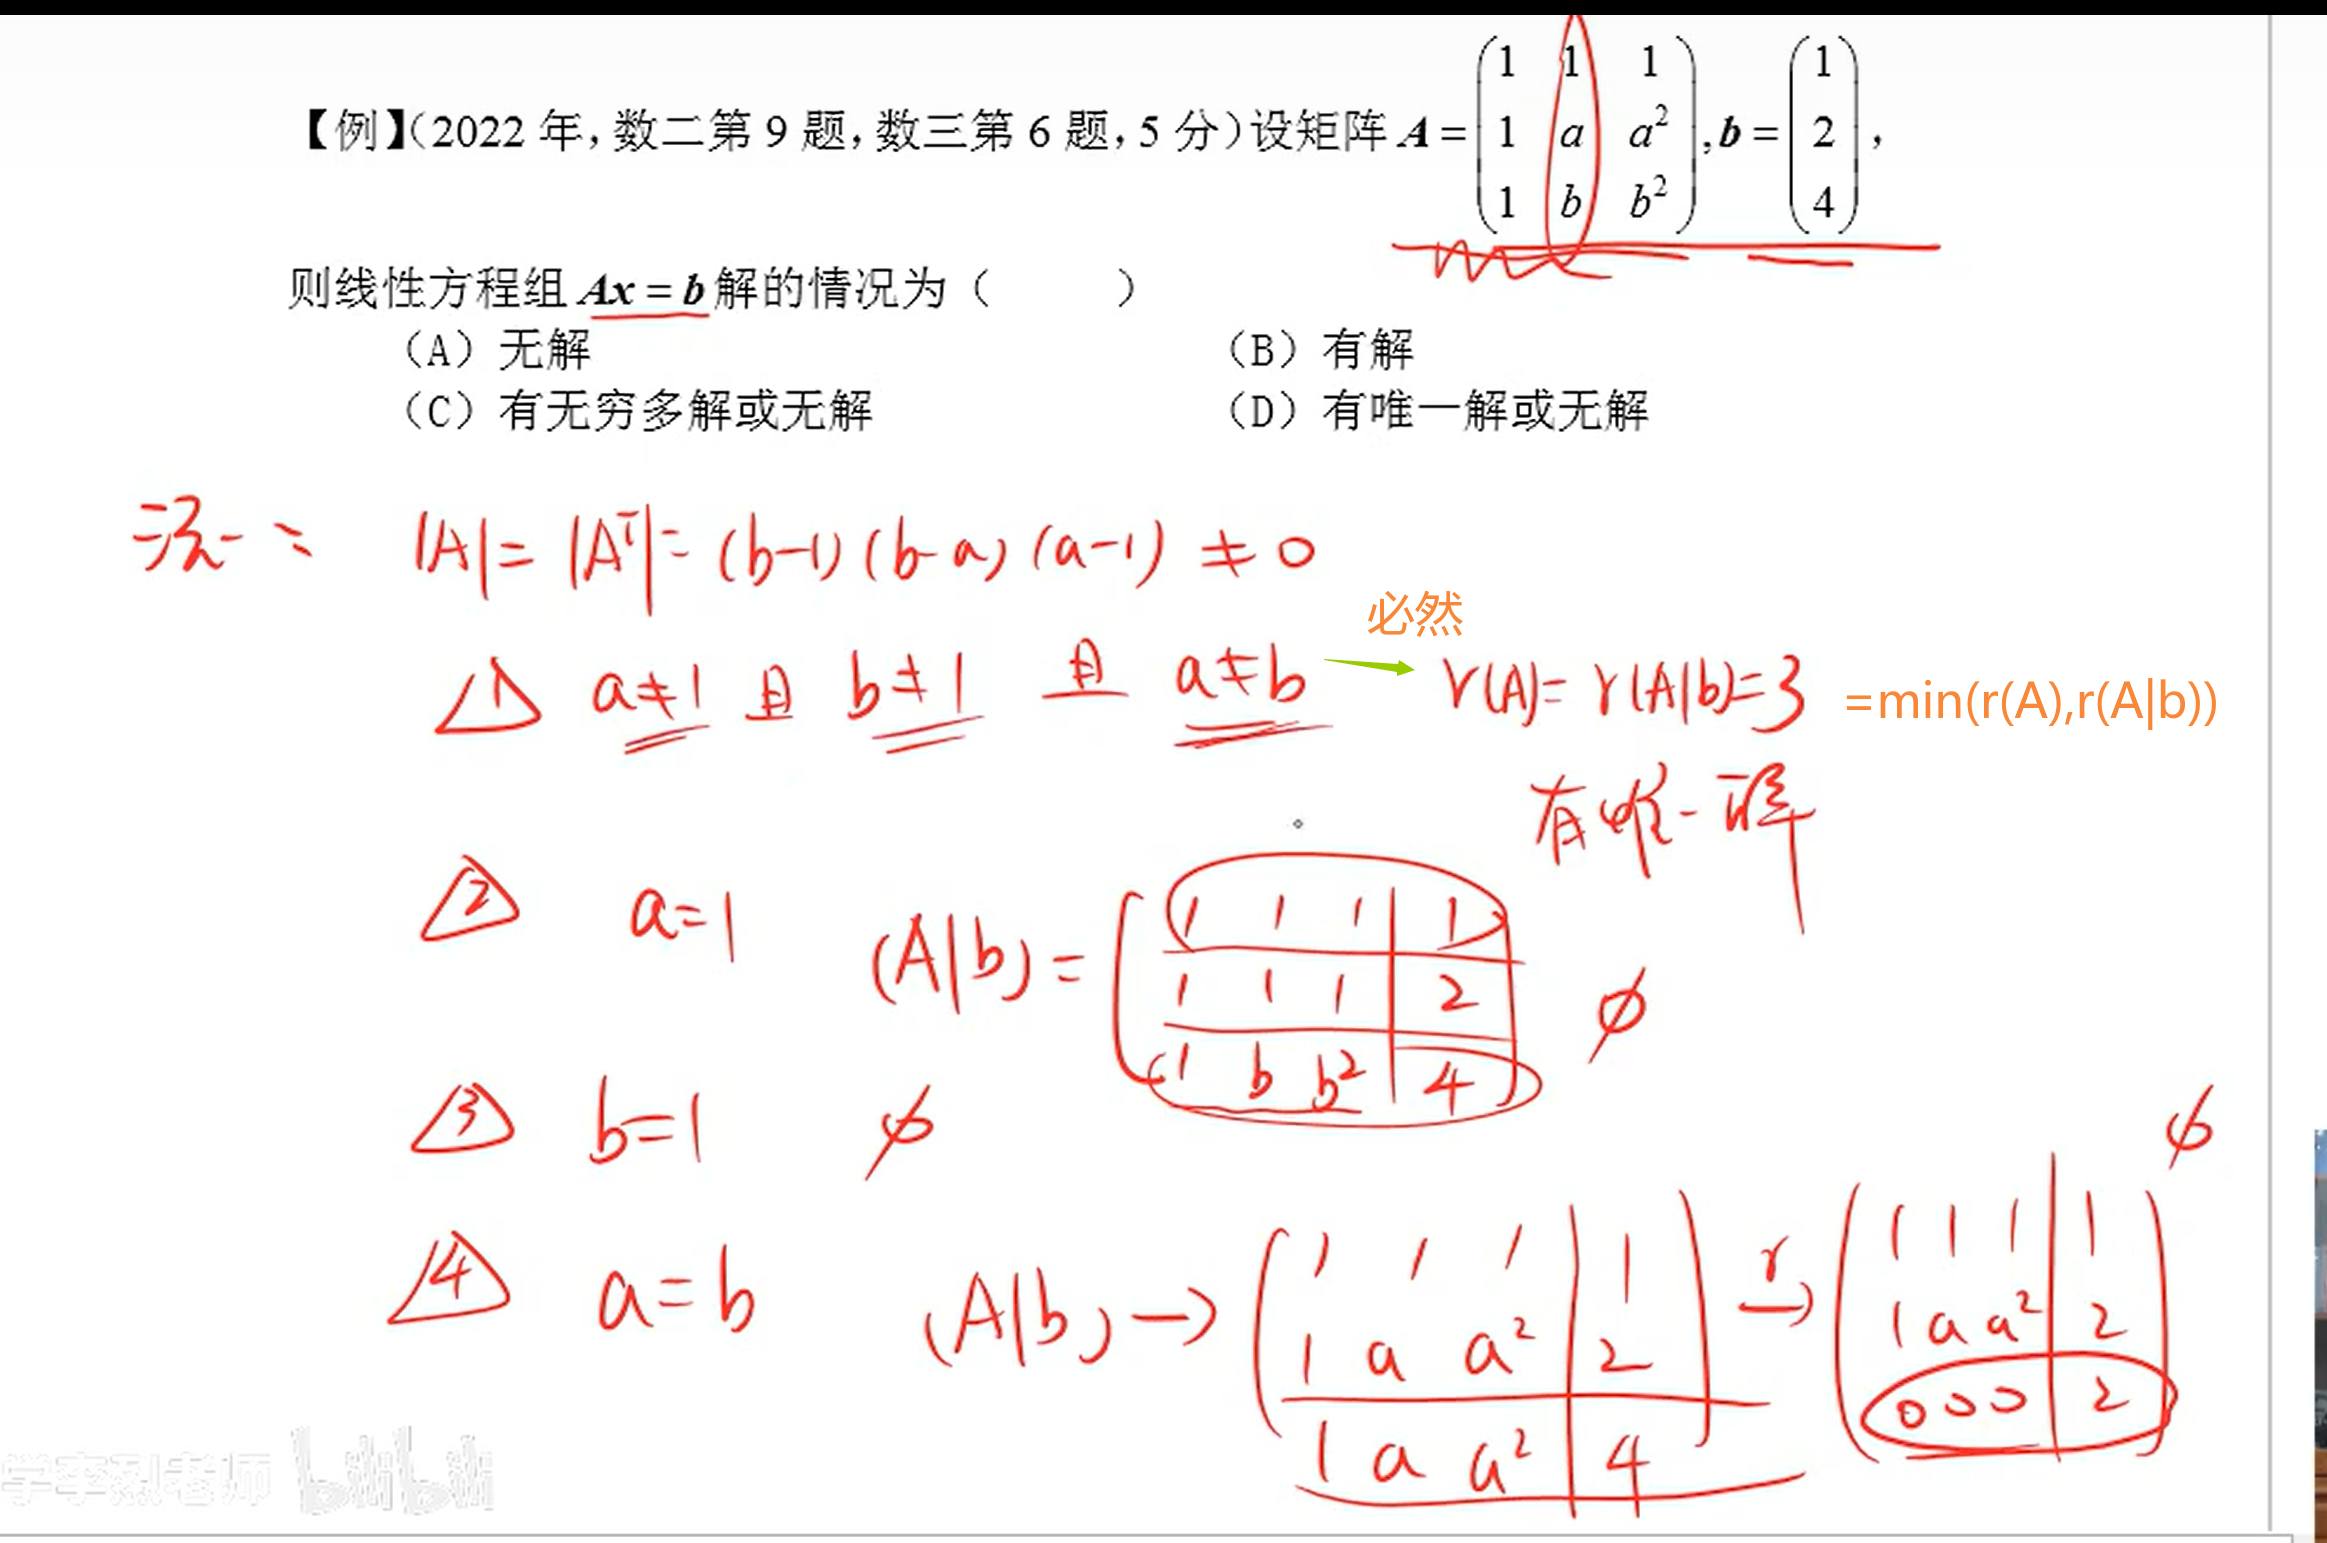 【例】(2022 年,数二第 9 题,数三第 6 题,5 分)设矩阵 A = (1 1 1; 1 a a²; 1 b b²), b = (1; 2; 4),
则线性方程组 Ax = b 解的情况为( )
(A) 无解 (B) 有解
(C) 有无穷多解或无解 (D) 有唯一解或无解
法一: |A| = |Aᵀ| = (b-1)(b-a)(a-1) ≠ 0
必然
△1 a≠1 且 b≠1 且 a≠b → r(A)= r(A|b)=3 =min(r(A),r(A|b))
有唯一解
△2 a=1 (A|b) = (1 1 1 | 1; 1 1 1 | 2; 1 b b² | 4) ∅
△3 b=1 ∅
△4 a=b (A|b) → (1 1 1 | 1; 1 a a² | 2; 1 a a² | 4) r→ (1 1 1 | 1; 1 a a² | 2; 0 0 0 | 2) ∅
学李烈老师 bilibili